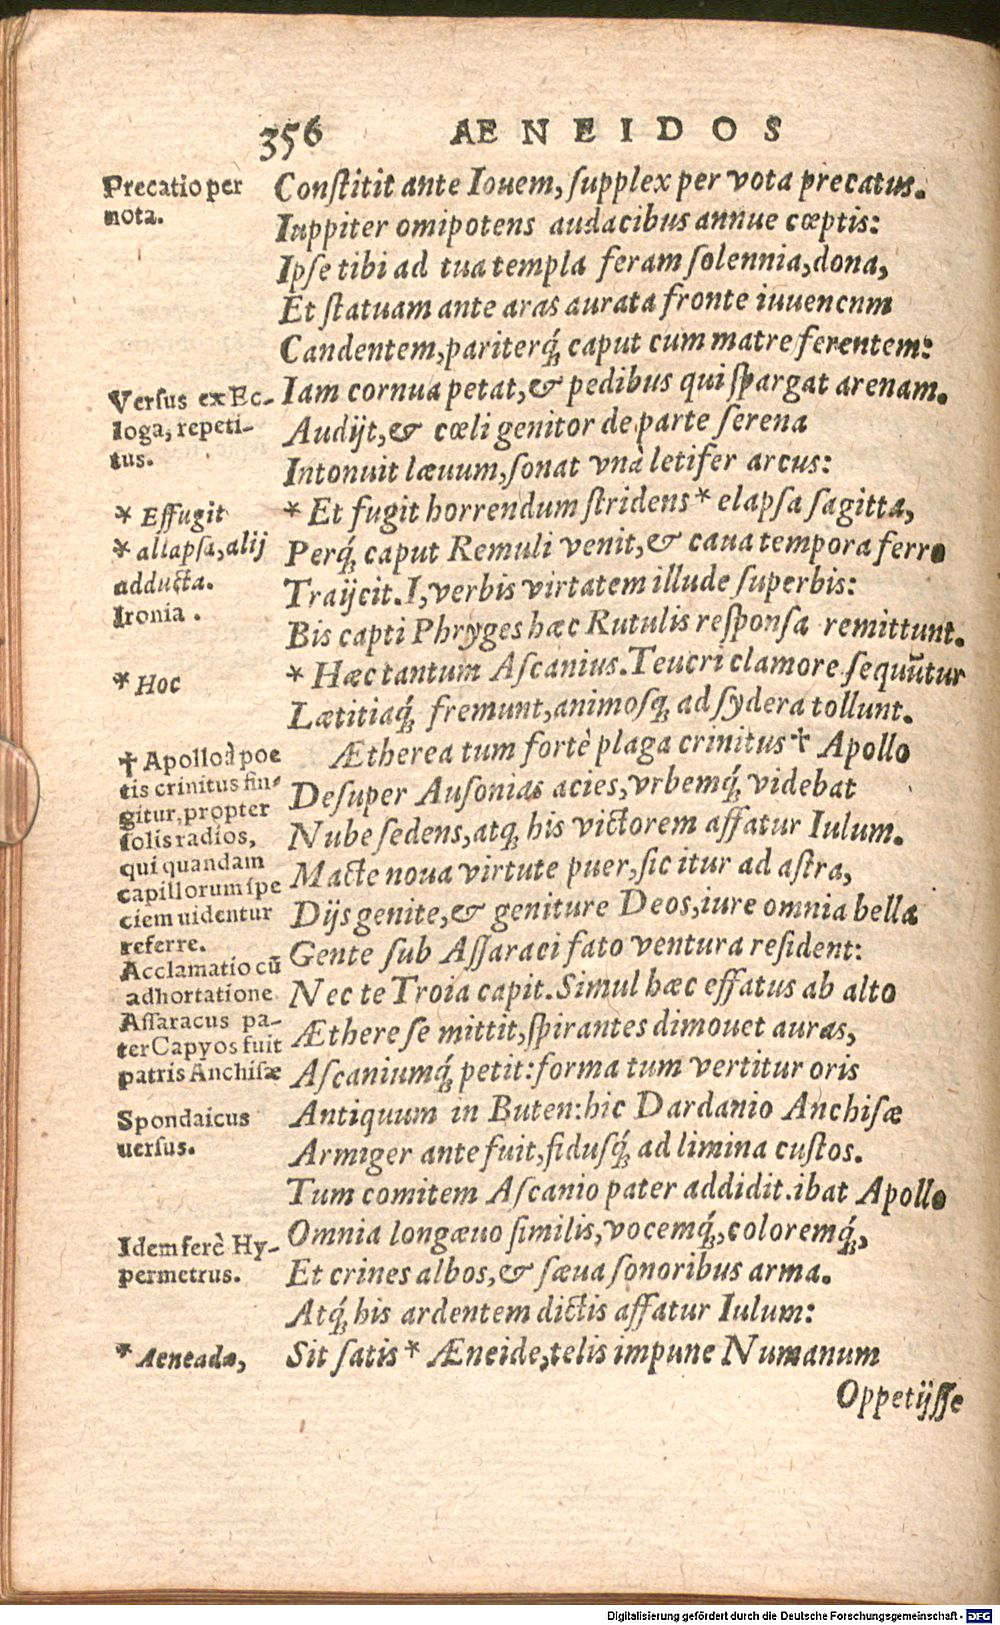 356 AENEIDOS
Precatio per
uota.
Conſtitit ante Iouem, ſupplex per vota precatus.
Iuppiter omipotens audacibus annue cœptis:
Ipſe tibi ad tua templa feram ſolennia, dona,
Et ſtatuam ante aras aurata fronte iuuencnm
Candentem, pariterq́; caput cum matre ferentem:
Verſus ex Ec-
loga, repeti-
tus.
Iam cornua petat, & pedibus qui ſpargat arenam.
Audijt, & cœli genitor de parte ſerena
Intonuit læuum, ſonat vnà letifer arcus:
* Effugit
* allapſa, alij
adducta.
Ironia.
* Et fugit horrendum ſtridens * elapſa ſagitta,
Perq́; caput Remuli venit, & caua tempora ferro
Traijcit. I, verbis virtatem illude ſuperbis:
Bis capti Phryges hæc Rutulis reſponſa remittunt.
* Hoc
* Hæc tantum Aſcanius. Teucri clamore ſequũtur
Lætitiaq́; fremunt, animoſq; ad ſydera tollunt.
† Apollo à poe
tis crinitus fin-
gitur, propter
ſolis radios,
qui quandam
capillorum ſpe
ciem uidentur
referre.
Acclamatio cũ
adhortatione
Aſſaracus pa-
ter Capyos fuit
patris Anchiſæ
Ætherea tum fortè plaga crinitus † Apollo
Deſuper Auſonias acies, vrbemq́; videbat
Nube ſedens, atq; his victorem affatur Iulum.
Macte noua virtute puer, ſic itur ad aſtra,
Dijs genite, & geniture Deos, iure omnia bella
Gente ſub Aſſaraci fato ventura reſident:
Nec te Troia capit. Simul hæc effatus ab alto
Æthere ſe mittit, ſpirantes dimouet auras,
Aſcaniumq́; petit: forma tum vertitur oris
Spondaicus
uerſus.
Antiquum in Buten: hic Dardanio Anchiſæ
Armiger ante fuit, fiduſq́; ad limina cuſtos.
Tum comitem Aſcanio pater addidit. ibat Apollo
Idem ferè Hy-
permetrus.
Omnia longæuo ſimilis, vocemq́;, coloremq́;,
Et crines albos, & ſæua ſonoribus arma.
Atq́; his ardentem dictis affatur Iulum:
* Aeneadæ,
Sit ſatis * Æneide, telis impune Numanum
Oppetijſſe
Digitalisierung gefördert durch die Deutsche Forschungsgemeinschaft - DFG